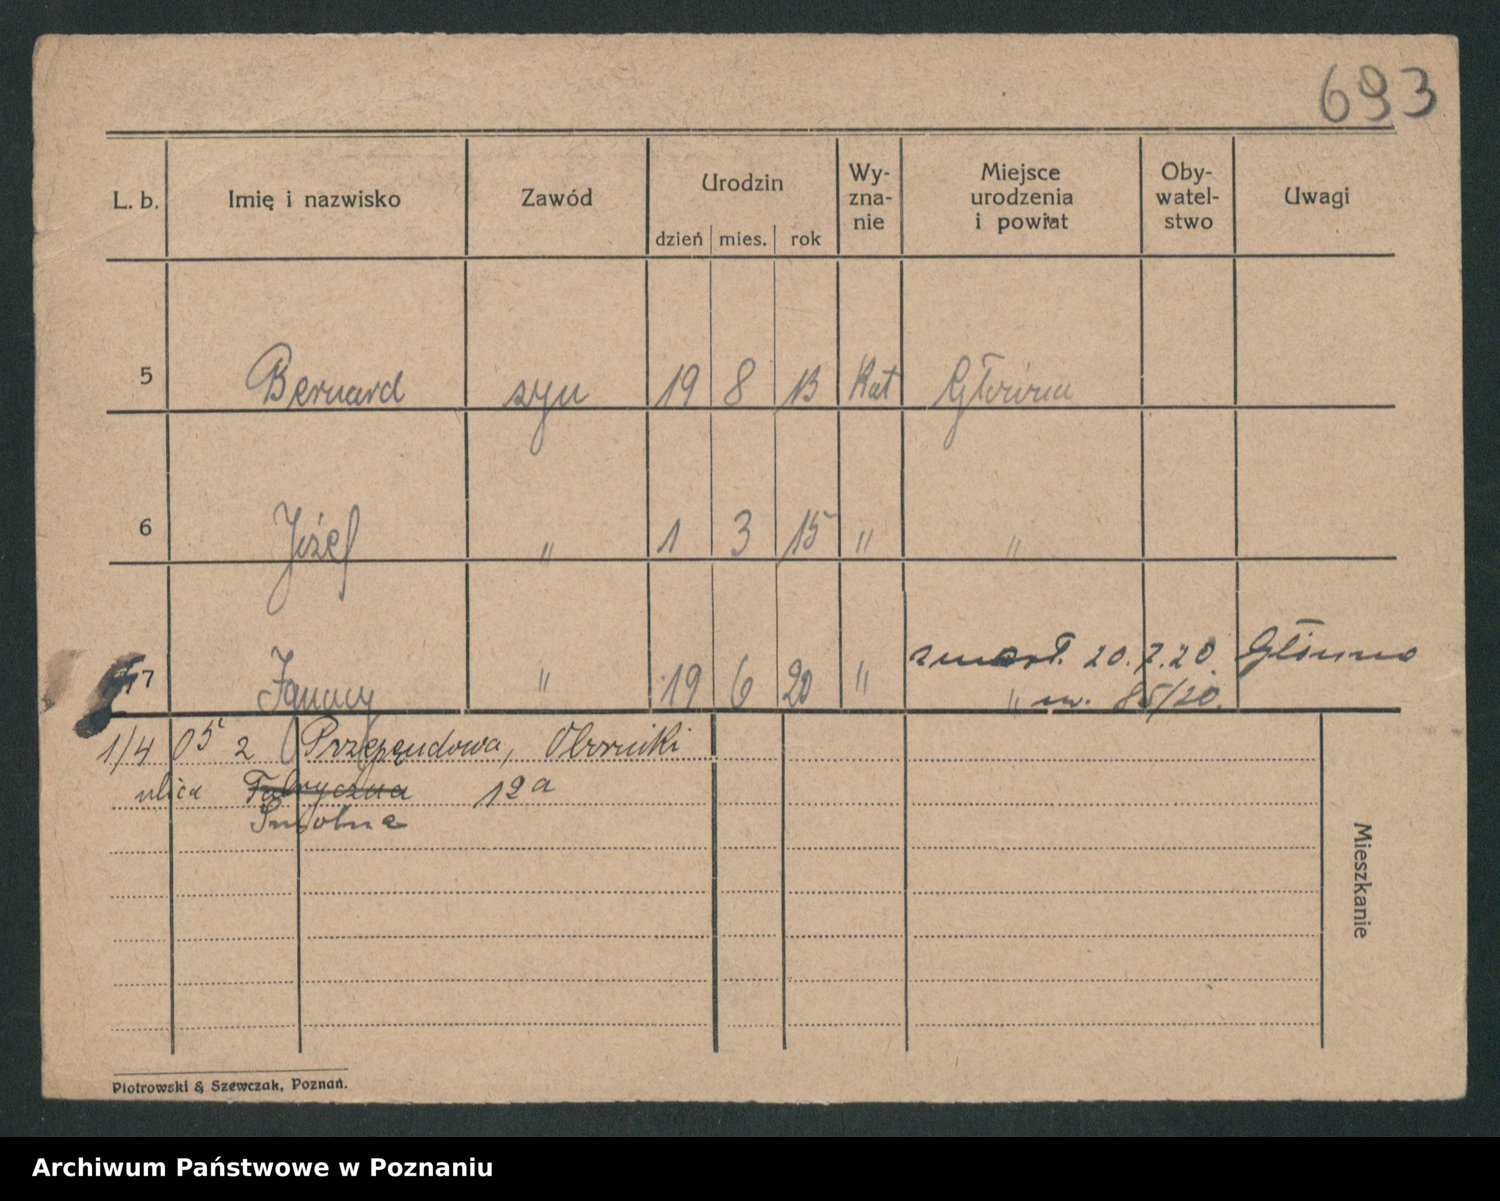 693
L. b. Imię i nazwisko Zawód Urodzin dzień mies. rok Wy-zna-nie Miejsce urodzenia i powiat Oby-watel-stwo Uwagi
5 Bernard syn 19 8 13 Kat Główna
6 Józef " 1 3 15 " "
zmarł. 20.7.20. Główno
7 Ignacy " 19 6 20 " " nr. 85/20.
1/4 05 2 Przependowa, Oborniki
ulica Fabryczna 12a
Smolna
Mieszkanie
Piotrowski & Szewczak, Poznań.
Archiwum Państwowe w Poznaniu